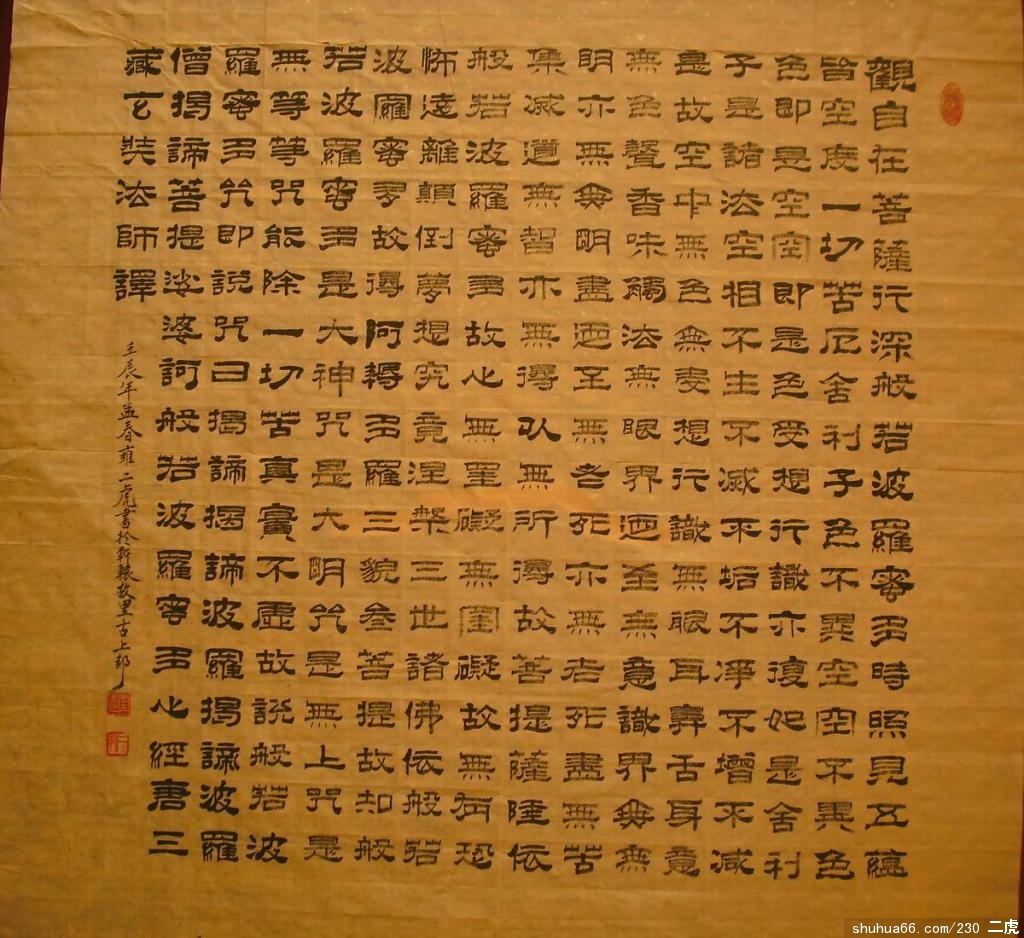 觀自在菩薩行深般若波羅蜜多時照見五蘊
皆空度一切苦厄舍利子色不異空空不異色
色即是空空即是色受想行識亦復如是舍利
子是諸法空相不生不滅不垢不淨不增不減
是故空中無色無受想行識無眼耳鼻舌身意
無色聲香味觸法無眼界迺至無意識界無無
明亦無無明盡迺至無老死亦無老死盡無苦
集滅道無智亦無得以無所得故菩提薩埵依
般若波羅蜜多故心無罣礙無罣礙故無有恐
怖遠離顛倒夢想究竟涅槃三世諸佛依般若
波羅蜜多故得阿耨多羅三藐叁菩提故知般
若波羅蜜多是大神咒是大明咒是無上咒是
無等等咒能除一切苦真實不虛故說般若波
羅蜜多咒即說咒曰揭諦揭諦波羅揭諦波羅
僧揭諦菩提娑婆訶般若波羅蜜多心經唐三
藏玄奘法師譯
壬辰年孟春雍二虎書於軒轅故里古上邽
shuhua66.com/230 二虎